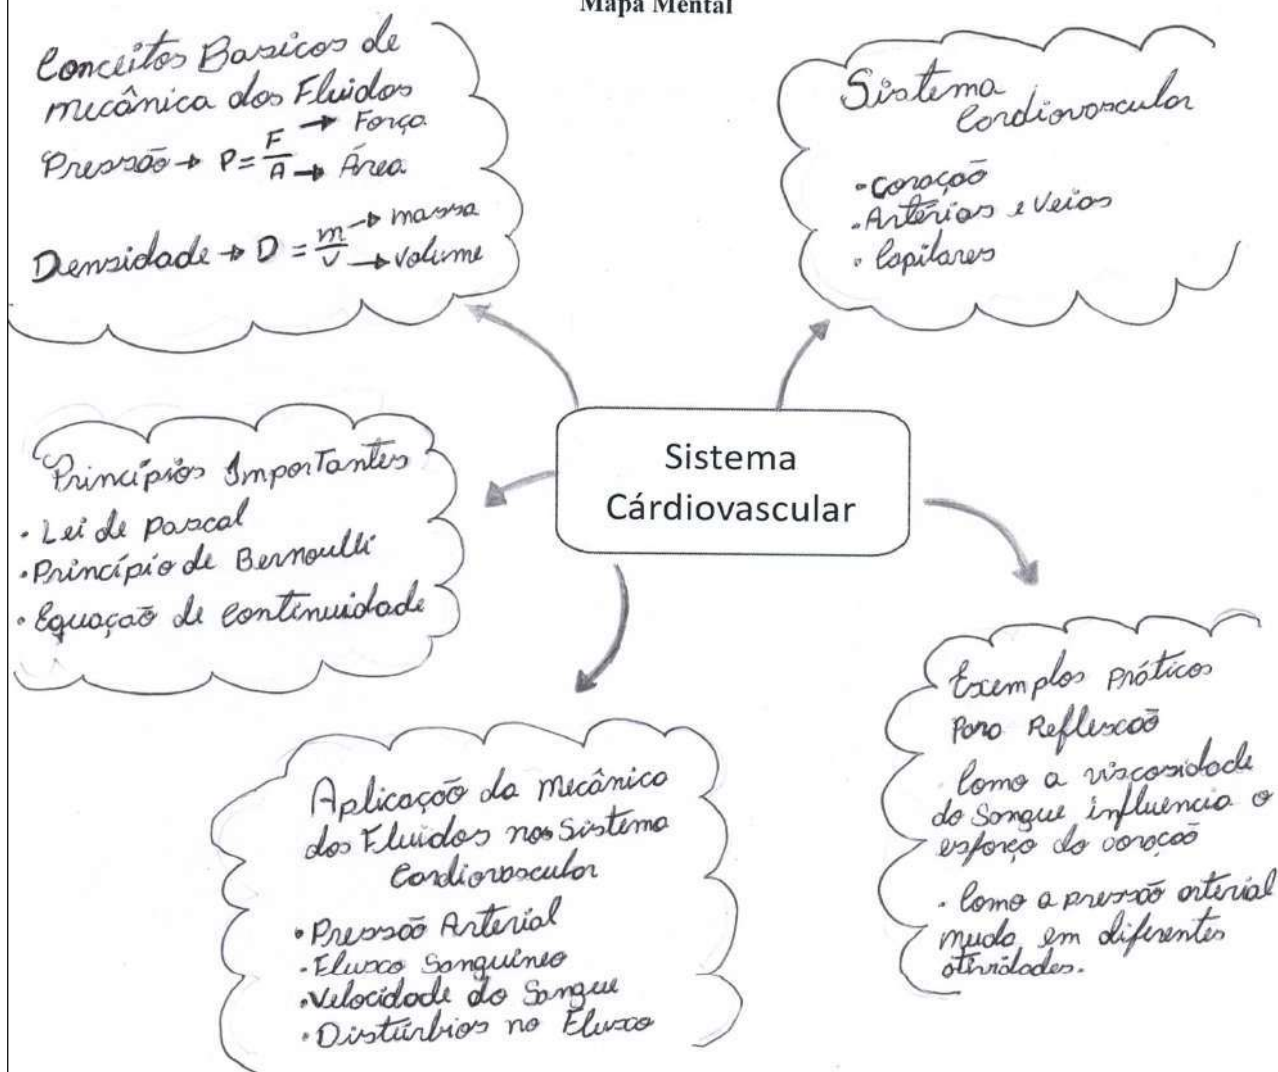 Mapa Mental
Conceitos Basicos de
mecânica dos Fluidos
Pressão → P = F/A → Força → Área
Densidade → D = m/v → massa → volume
Sistema
Cardiovascular
• Coração
• Artérias e Veias
• Capilares
Sistema
Cárdiovascular
Princípios Importantes
• Lei de Pascal
• Princípio de Bernoulli
• Equação de Continuidade
Aplicação da Mecânica
dos Fluidos nos Sistema
Cardiovascular
• Pressão Arterial
• Fluxo Sanguíneo
• Velocidade do Sangue
• Distúrbios no Fluxo
Exemplos Práticos
Para Reflexão
• Como a viscosidade
do Sangue influencia o
esforço do coração
• Como a pressão arterial
muda em diferentes
atividades.